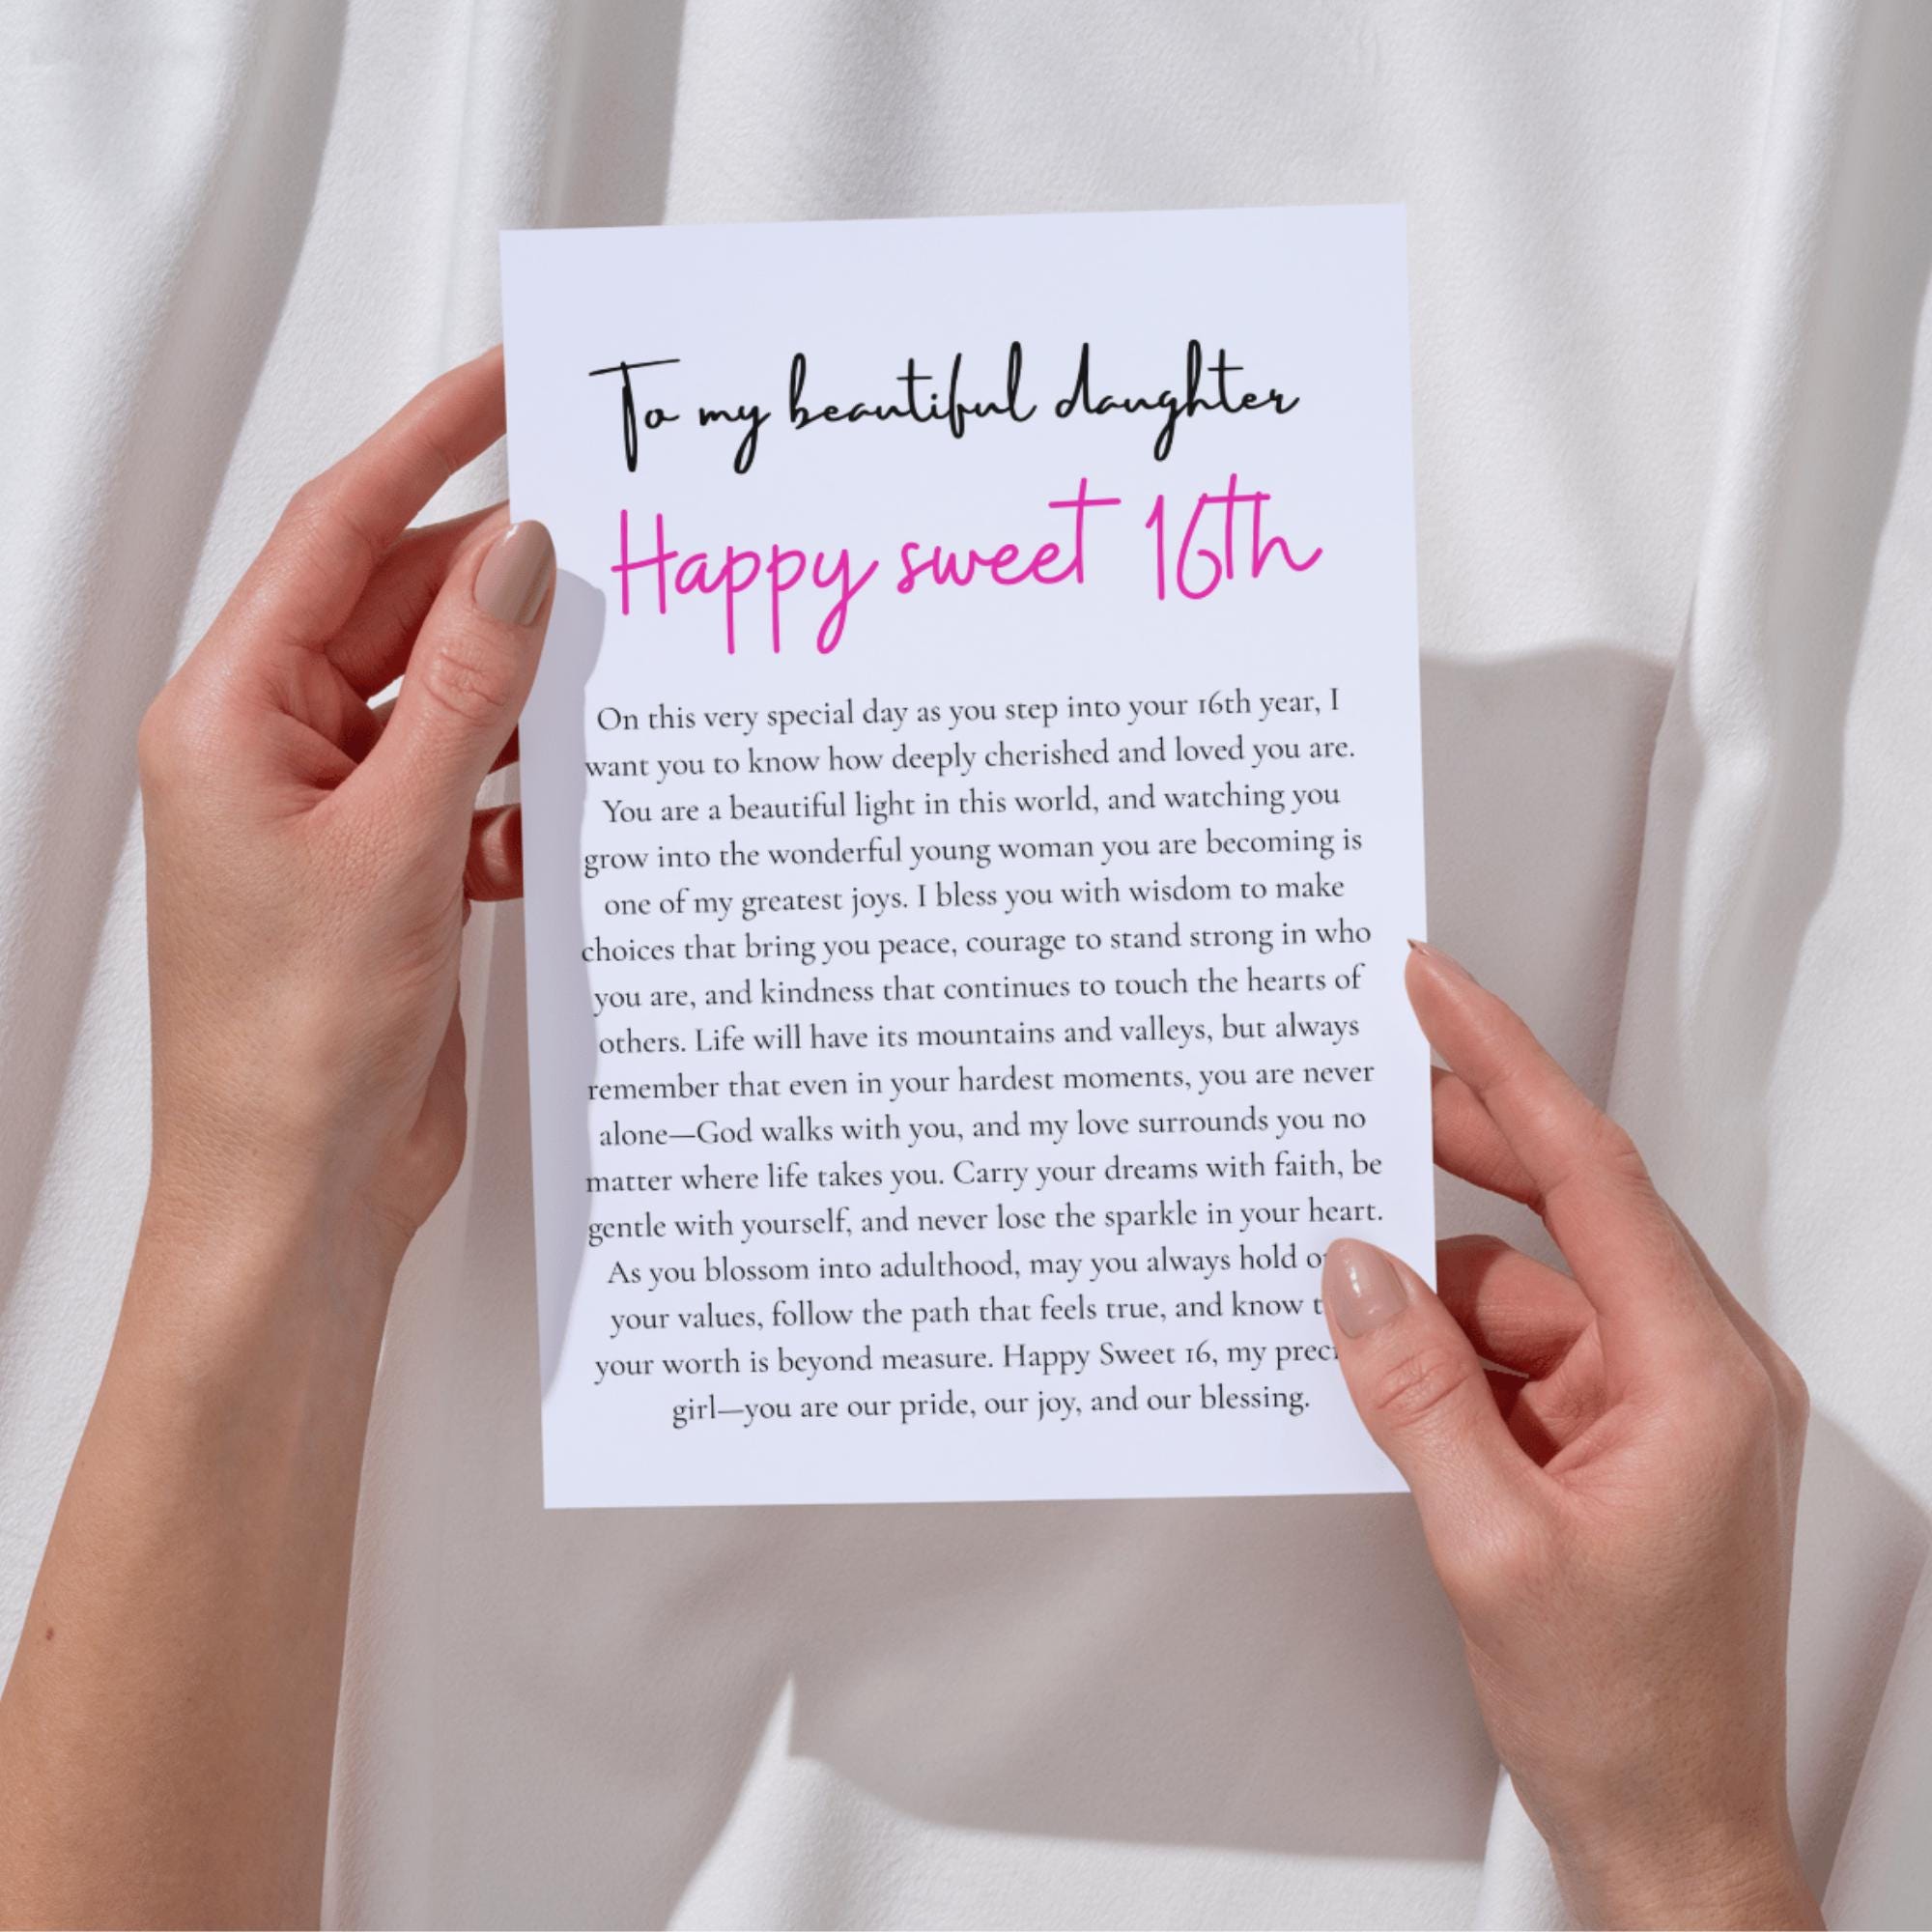 To my beautiful daughter
Happy sweet 16th
On this very special day as you step into your 16th year, I
want you to know how deeply cherished and loved you are.
You are a beautiful light in this world, and watching you
grow into the wonderful young woman you are becoming is
one of my greatest joys. I bless you with wisdom to make
choices that bring you peace, courage to stand strong in who
you are, and kindness that continues to touch the hearts of
others. Life will have its mountains and valleys, but always
remember that even in your hardest moments, you are never
alone—God walks with you, and my love surrounds you no
matter where life takes you. Carry your dreams with faith, be
gentle with yourself, and never lose the sparkle in your heart.
As you blossom into adulthood, may you always hold
your values, follow the path that feels true, and know
your worth is beyond measure. Happy Sweet 16, my
girl—you are our pride, our joy, and our blessing.